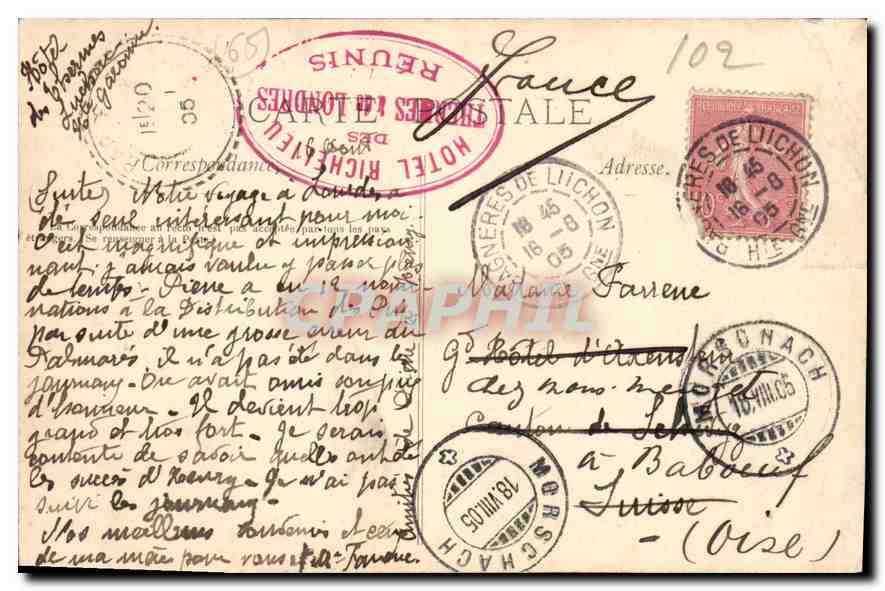 Hôtel
des Thermes
Luchon
Hte Garonne
(65)
HOTEL RICHELIEU
DES
THERMES & de LONDRES
RÉUNIS
France
102
CARTE POSTALE
Correspondance.
Adresse.
18 Août
(Suite) Notre voyage à Lourdes a
été seul intéressant pour moi.
La Correspondance au recto n'est pas acceptée par tous les pays
étrangers (Se renseigner à la Poste)
C'est magnifique et impression
nant; j'aurais voulu y passer plus
de temps - Pierre a eu 12 nomi
nations à la Distribution des Prix
par suite d'une grosse erreur du
Palmarès, il n'a pas été dans le
journaux - On avait omis son prix
d'honneur - Il devient trop
grand et trop fort - Je serais
contente de savoir quels ont été
les succès d'Henry - Je n'ai pas
suivi les journaux -
Nos meilleurs souvenirs et ceux
de ma mère pour vous et Mr Farrene
Madame Farrene
Gd Hôtel d'Axenstein
chez
Canton de Schwyz
à Baboeuf
Suisse
- (Oise)
15/20
05
BAGNERES DE LUCHON
16 45
16 -8
05
Hte GNE
BAGNERES DE LUCHON
16 45
16 -8
05
Hte GNE
MORSCHACH
18.VIII.05
MORSCHACH
18.VIII.05
CPAPHIL